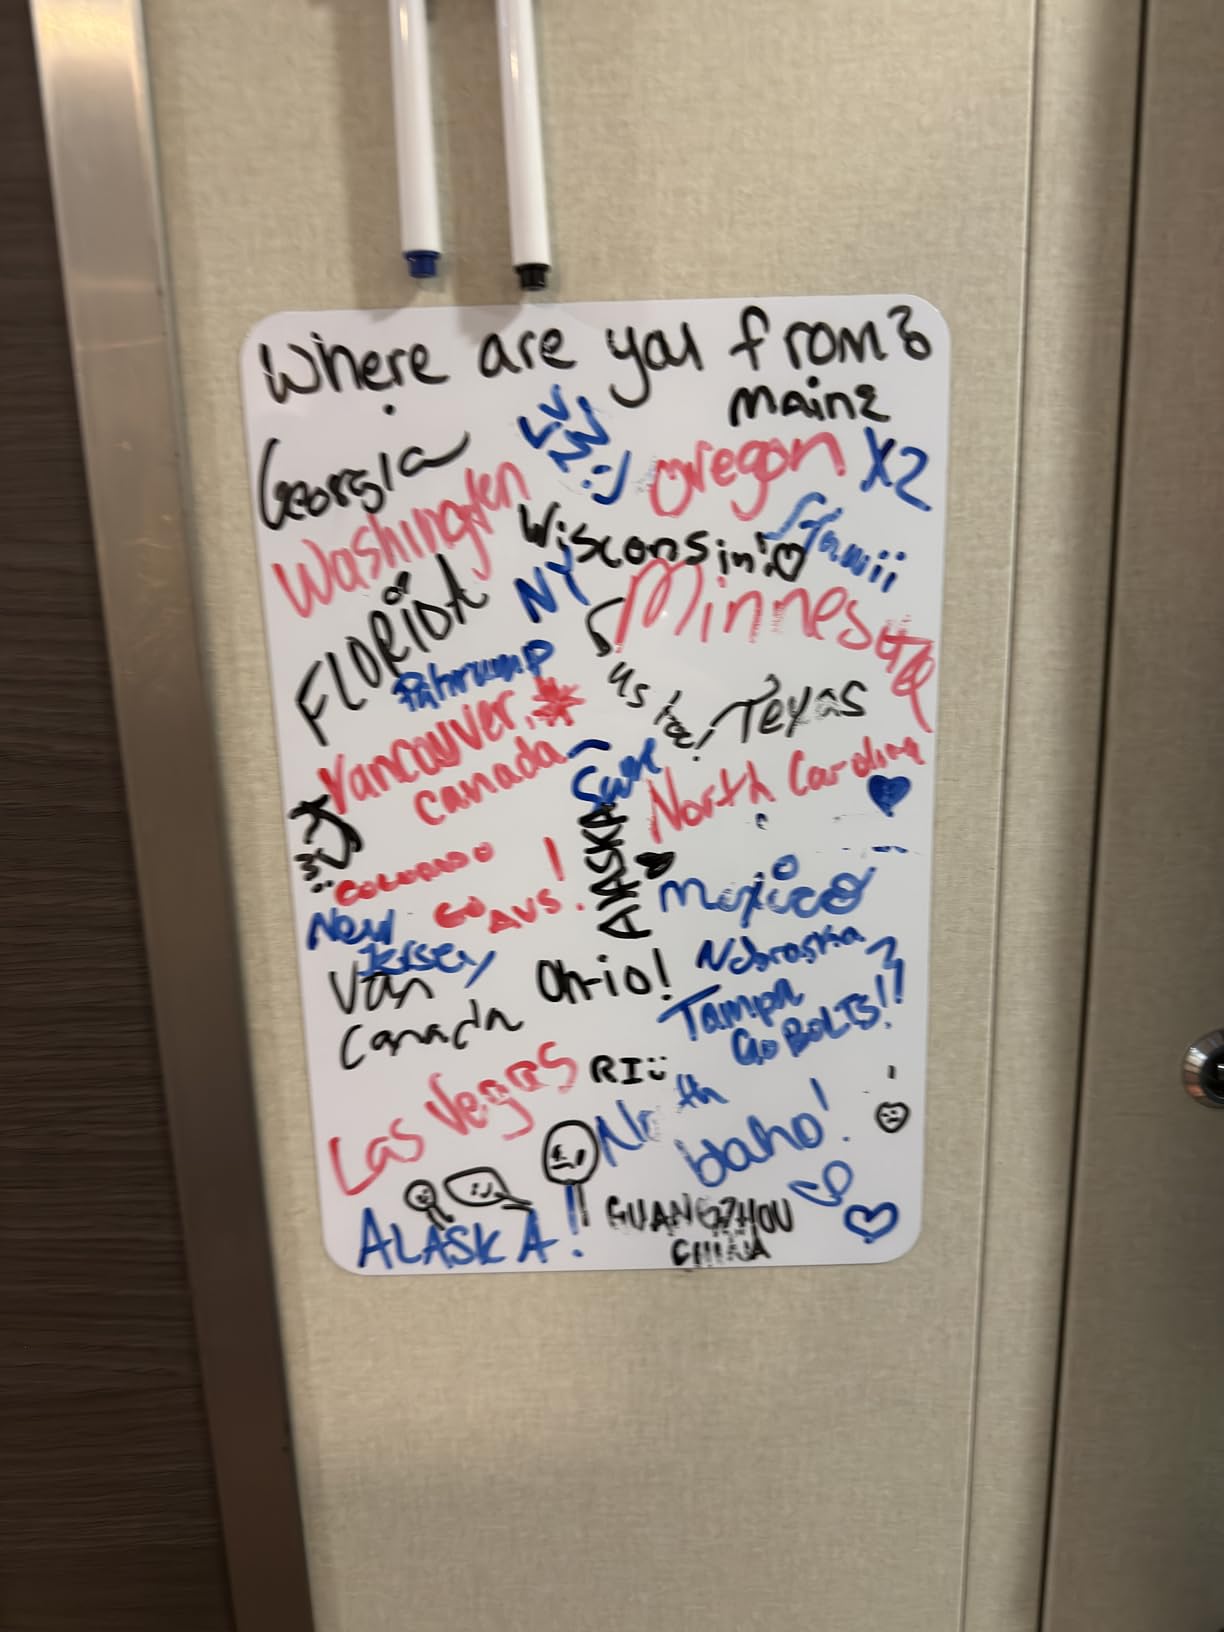 Where are you from?
Maine
Georgia
LV
NV :)
Oregon X2
Washington
Wisconsin!
Hawaii
FLORIDA
NY
Minnesota
Pahrump
Texas
Vancouver,
Canada
North Carolina
ALASKA
COLORADO
GO AVS!
Mexico
New
Jersey
Van
Canada
Oh-io!
Nebraska
Tampa
Go BOLTS!!
Las Vegas
RI
North
Idaho!
ALASKA!
GUANGZHOU
CHINA